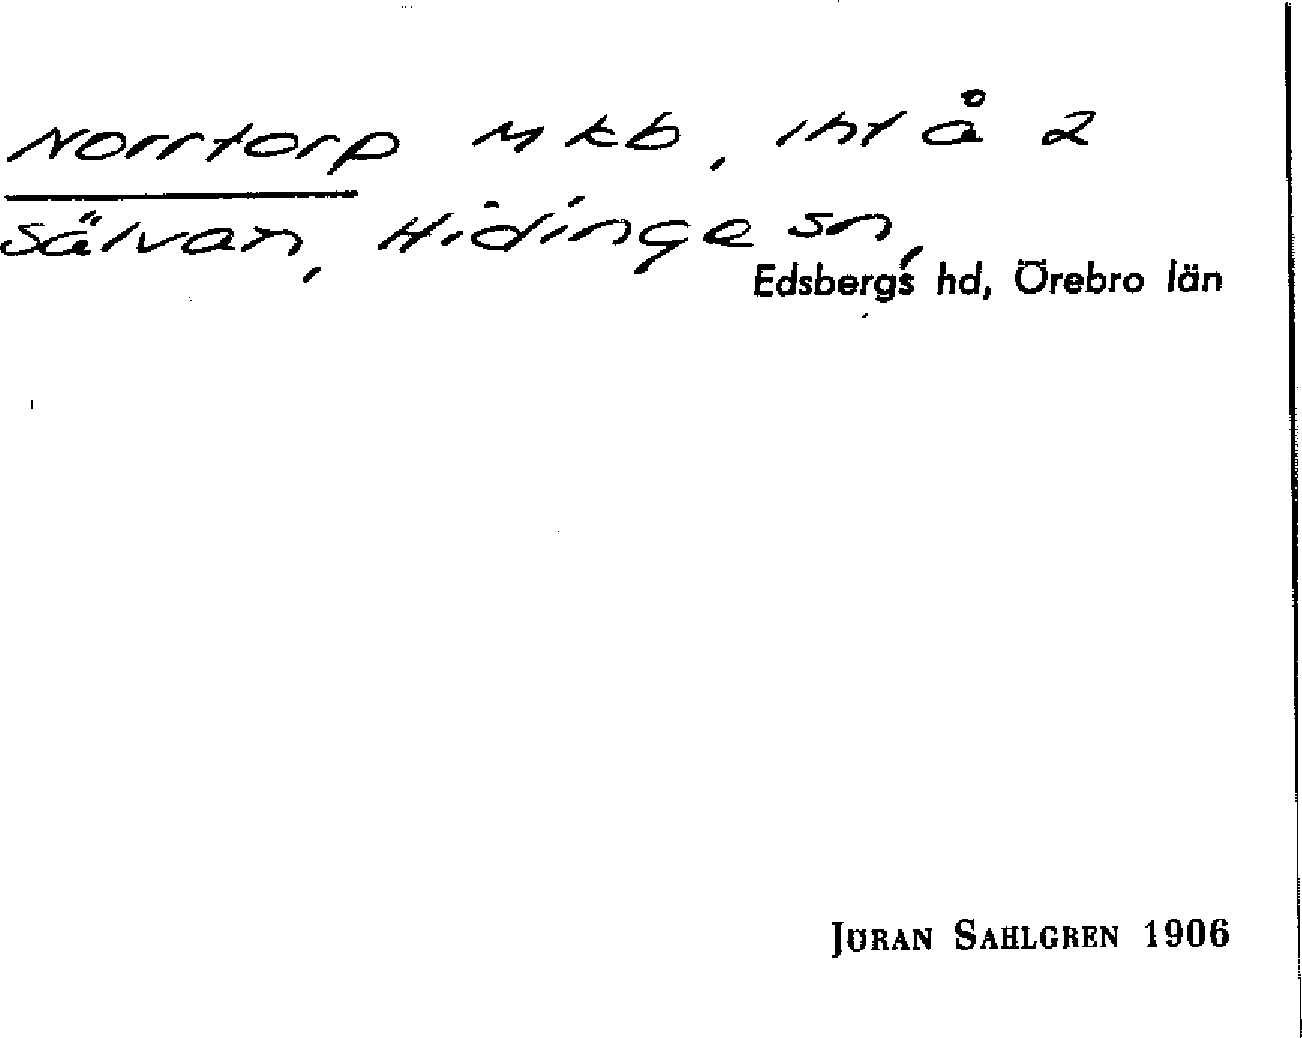 Norrtorp M kb, iht å 2
Sälvan, Hidinge sn,
Edsbergs hd, Örebro län
JÖRAN SAHLGREN 1906